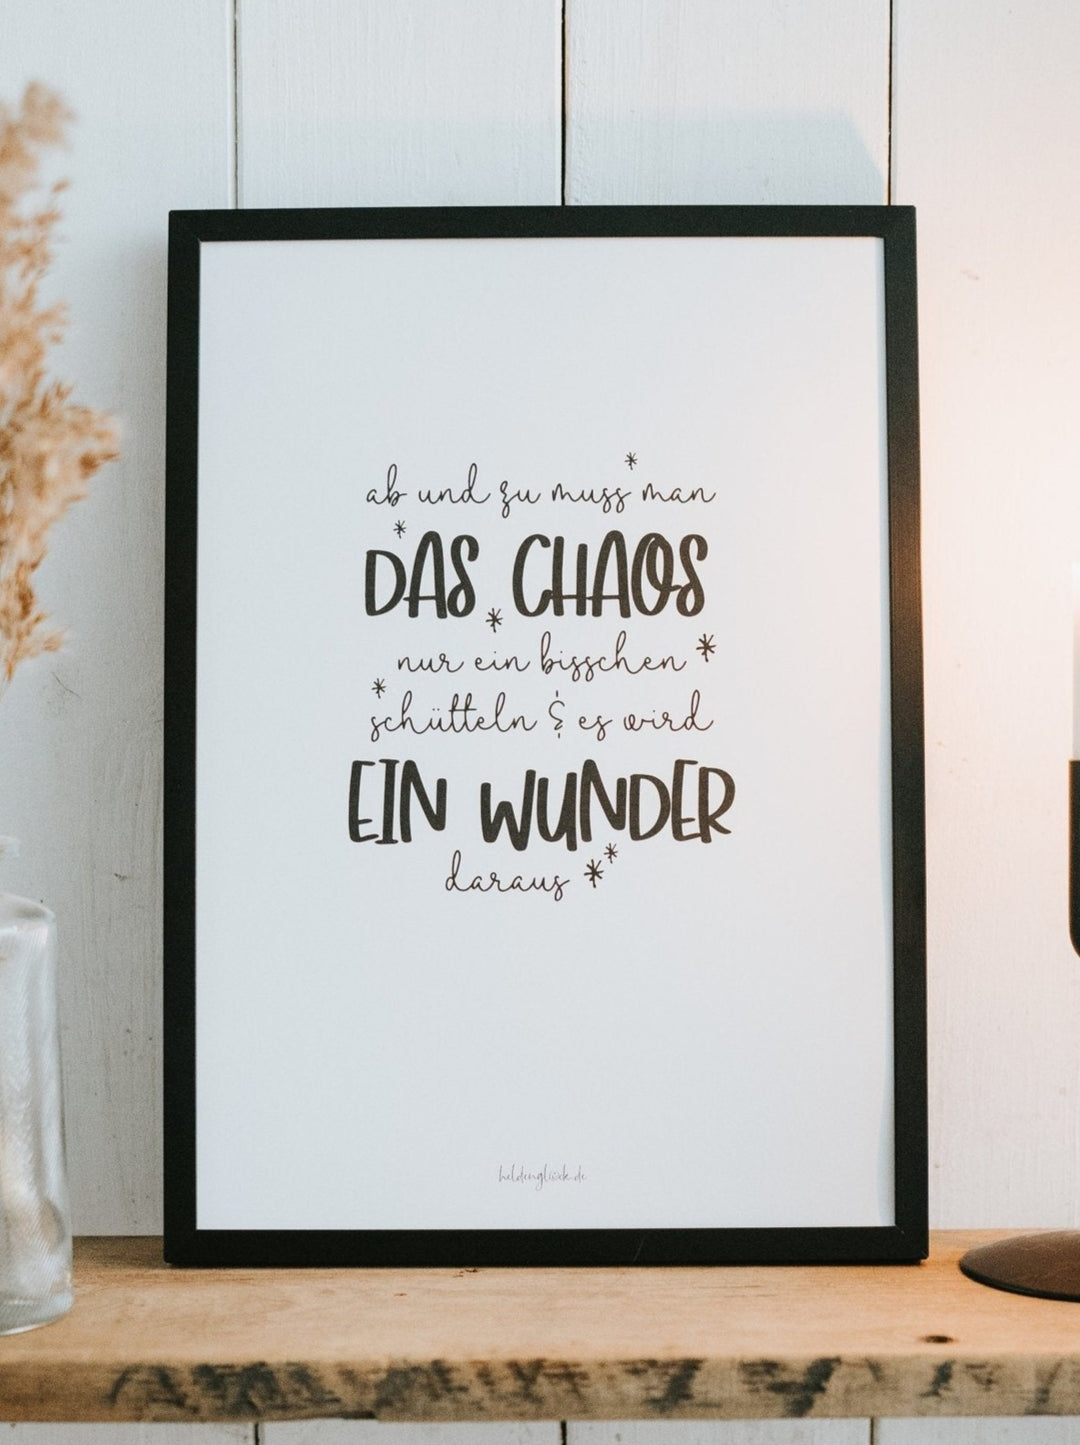 ab und zu muss man
DAS CHAOS
nur ein bisschen
schütteln & es wird
EIN WUNDER
daraus
heldenglück.de